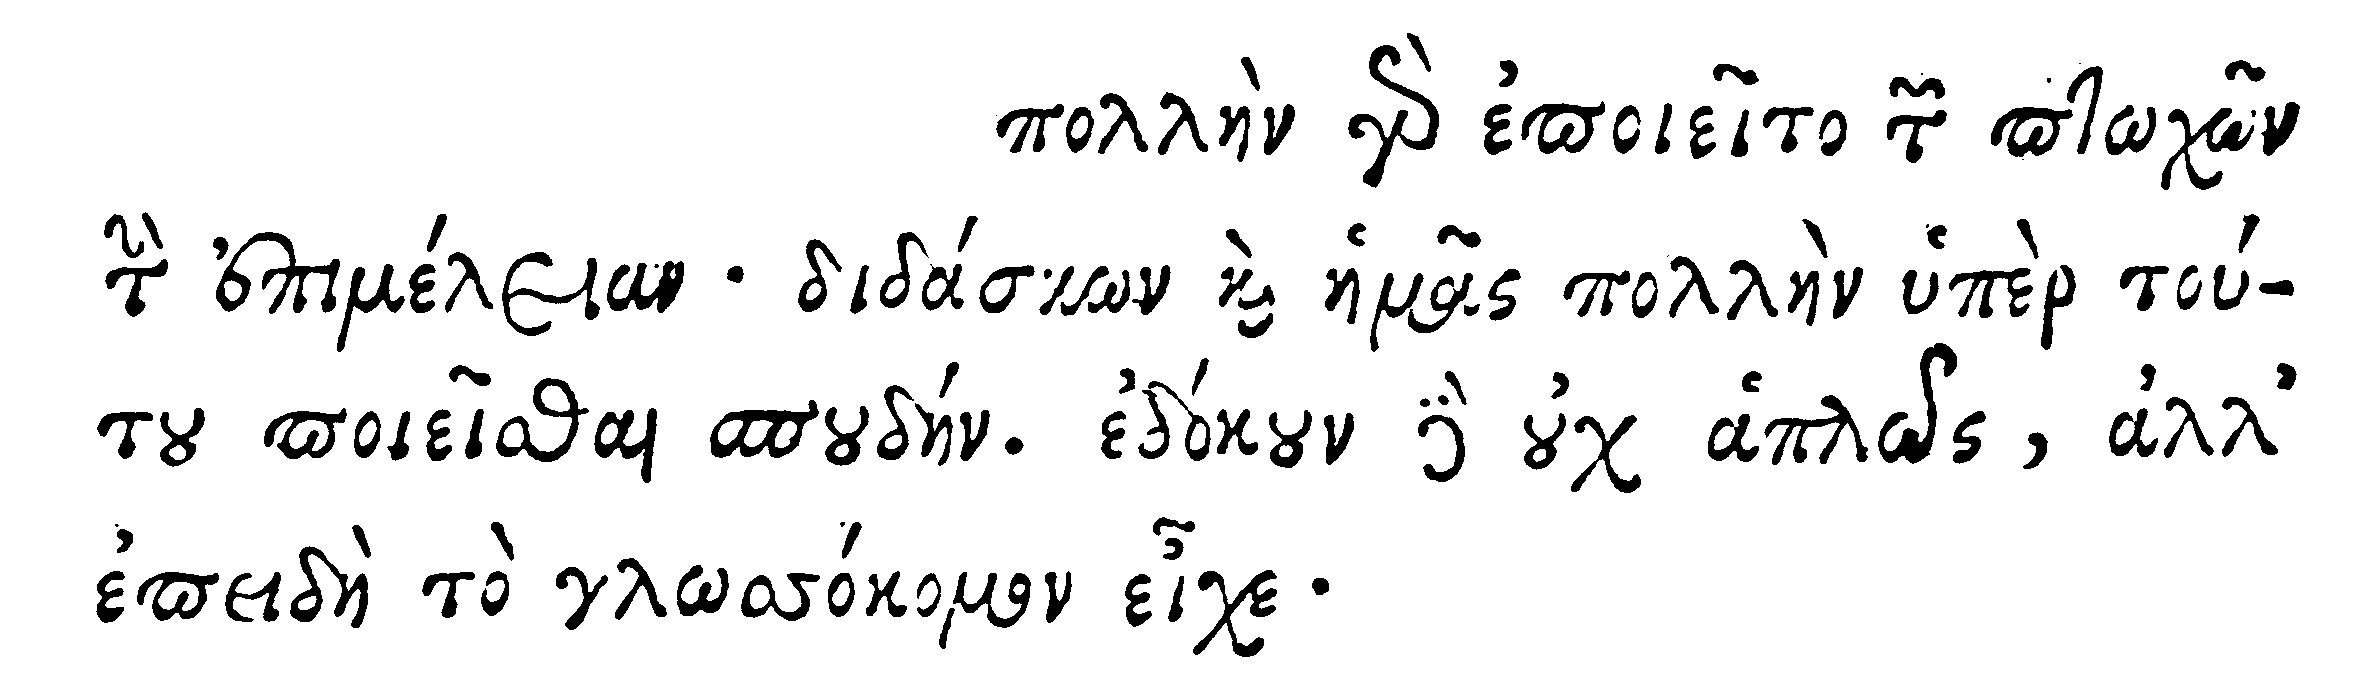 πολλὴν γὰρ ἐποιεῖτο τῶν πτωχῶν
τὴν ἐπιμέλειαν · διδάσκων καὶ ἡμᾶς πολλὴν ὑπὲρ τού-
του ποιεῖσθαι σπουδήν. ἐδόκουν δὲ οὐχ ἁπλῶς, ἀλλ’
ἐπειδὴ τὸ γλωσσόκομον εἶχε ·